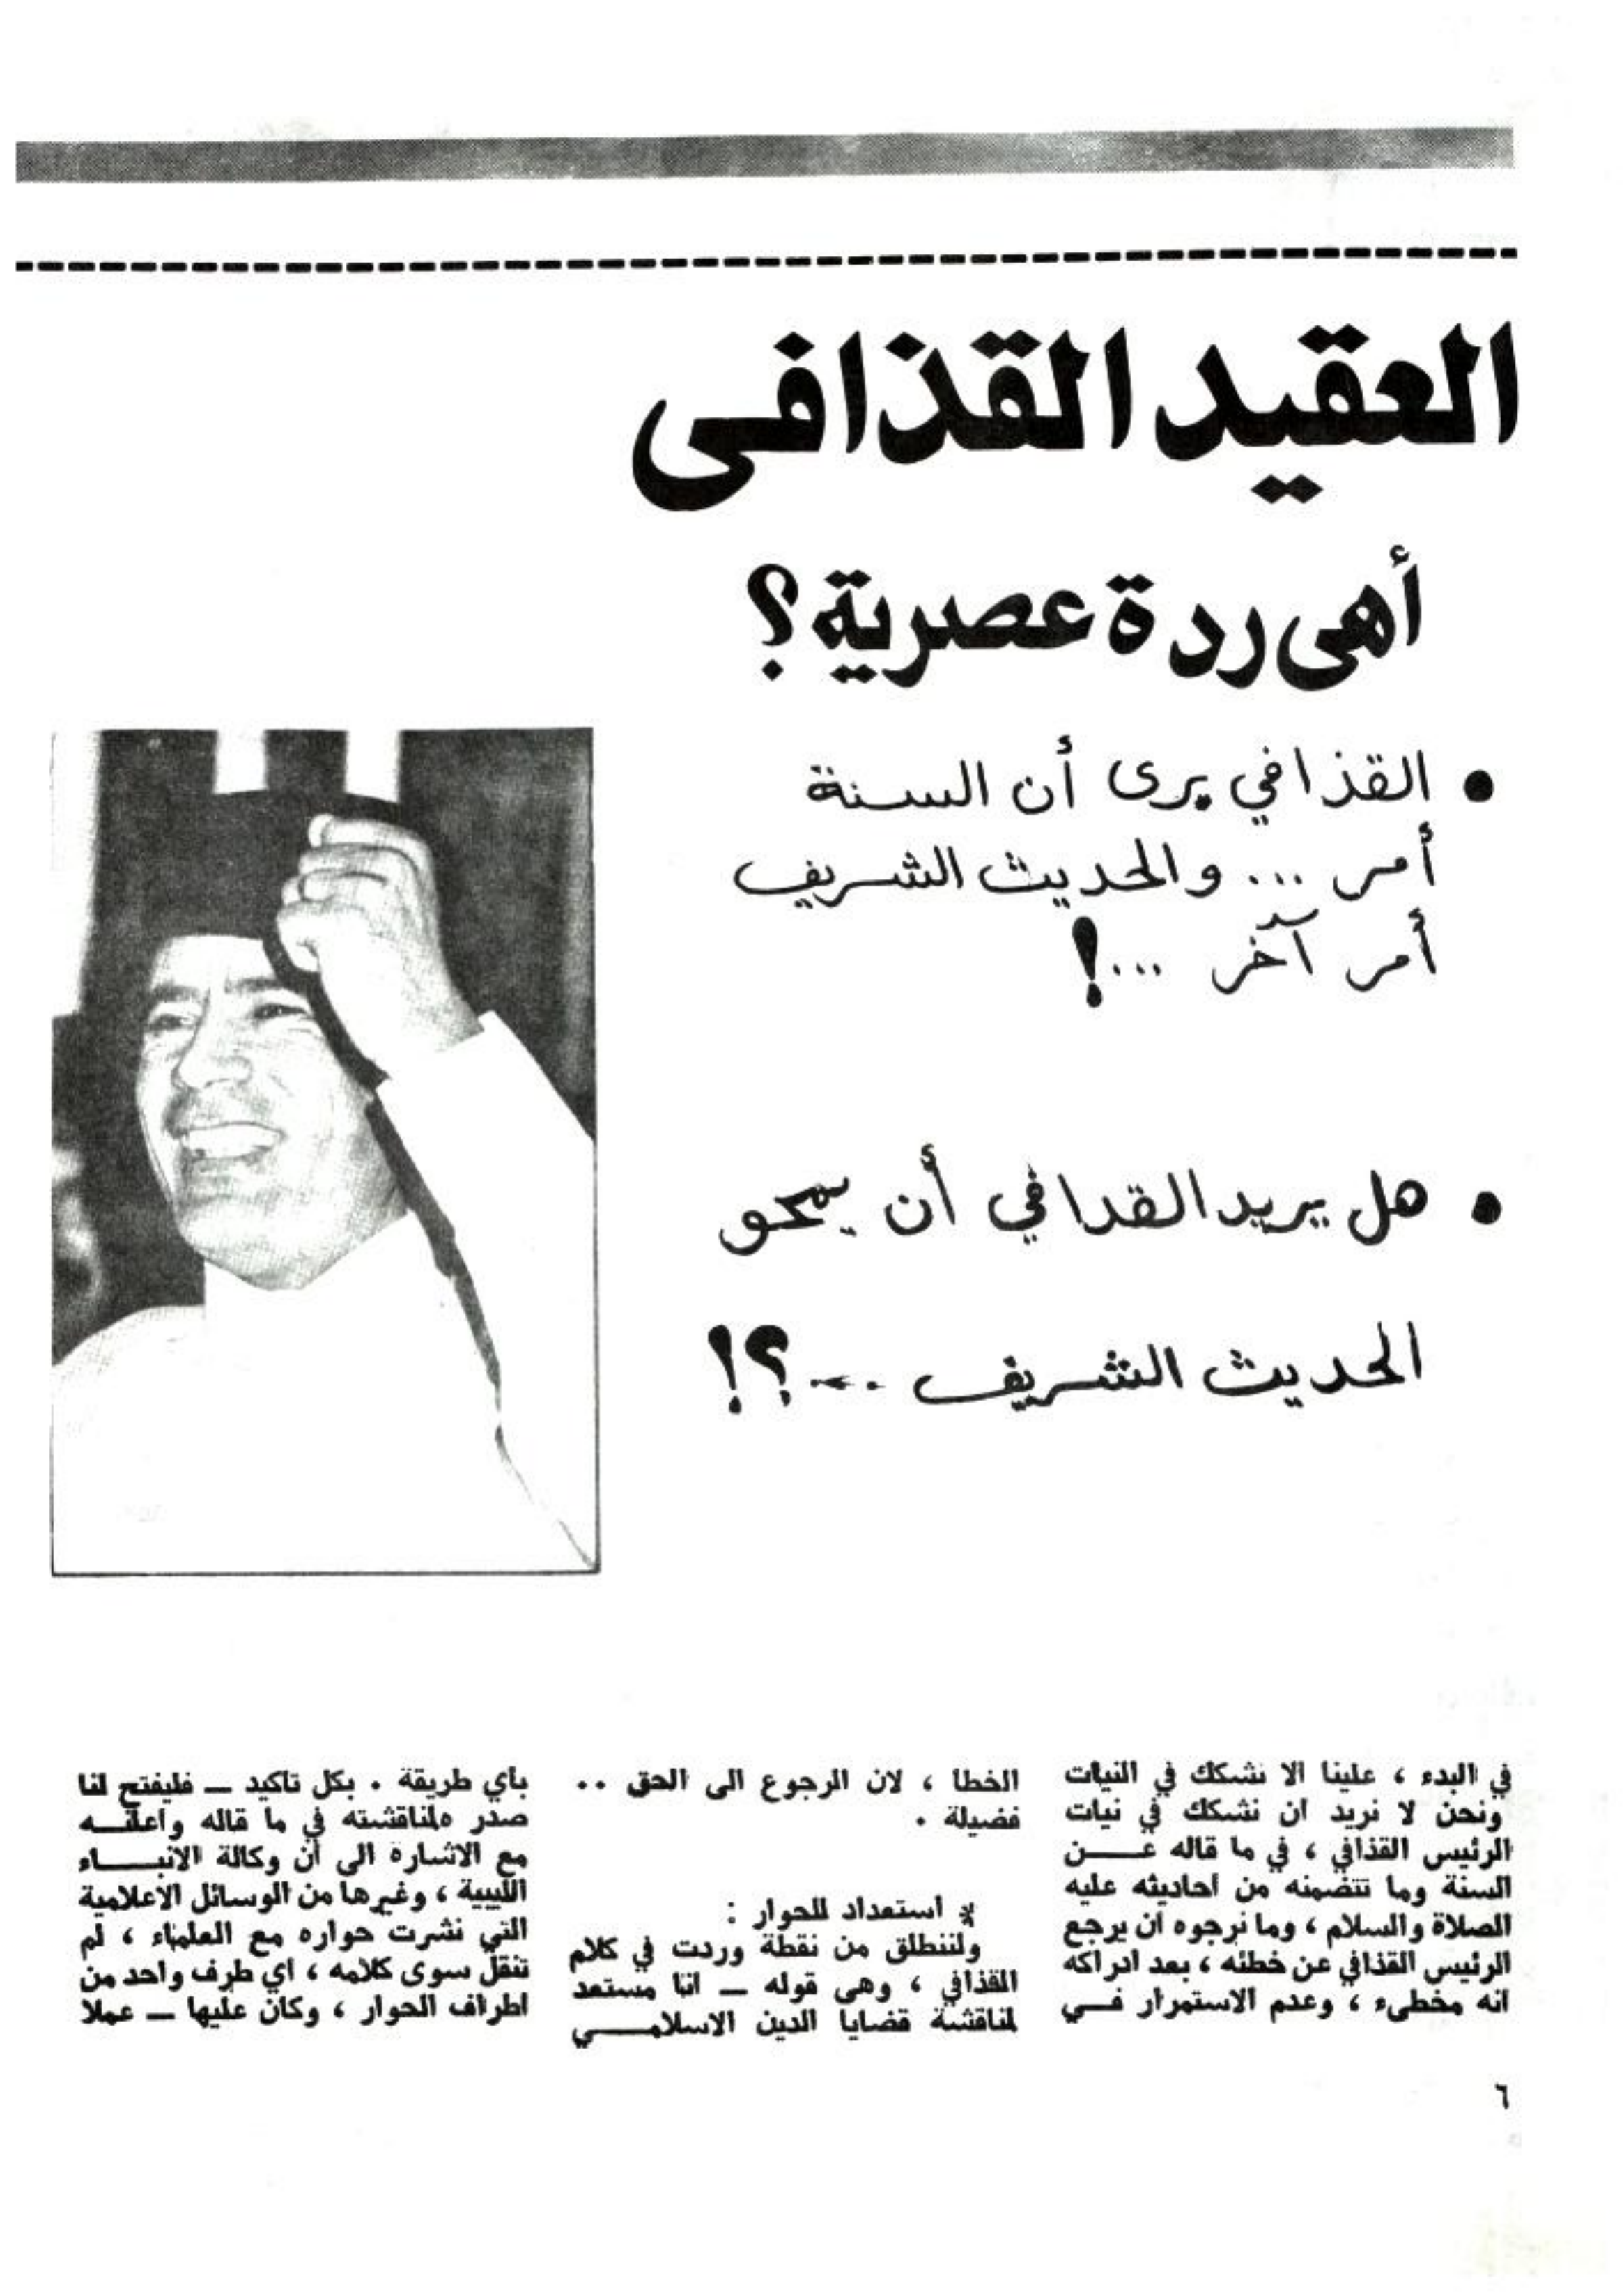 العقيد القذافى
أهى ردة عصرية؟
• القذافي يرى أن السنة
أمر ... والحديث الشريف
أمر آخر ...!
• هل يريد القدافي أن يمحو
الحديث الشريف ...؟!
في البدء ، علينا الا نشكك في النيات
ونحن لا نريد ان نشكك في نيات
الرئيس القذافي ، في ما قاله عـــن
السنة وما تتضمنه من احاديثه عليه
الصلاة والسلام ، وما نرجوه ان يرجع
الرئيس القذافي عن خطئه ، بعد ادراكه
انه مخطىء ، وعدم الاستمرار فـــي
الخطا ، لان الرجوع الى الحق ..
فضيلة .
* استعداد للحوار :
ولننطلق من نقطة وردت في كلام
القذافي ، وهى قوله ــ انا مستعد
لمناقشة قضايا الدين الاسلامـــي
باي طريقة . بكل تاكيد ــ فليفتح لنا
صدره لمناقشته في ما قاله واعلنـــه
مع الاشارة الى أن وكالة الانبـــاء
الليبية ، وغيرها من الوسائل الاعلامية
التي نشرت حواره مع العلماء ، لم
تنقل سوى كلامه ، اي طرف واحد من
اطراف الحوار ، وكان عليها ــ عملا
٦